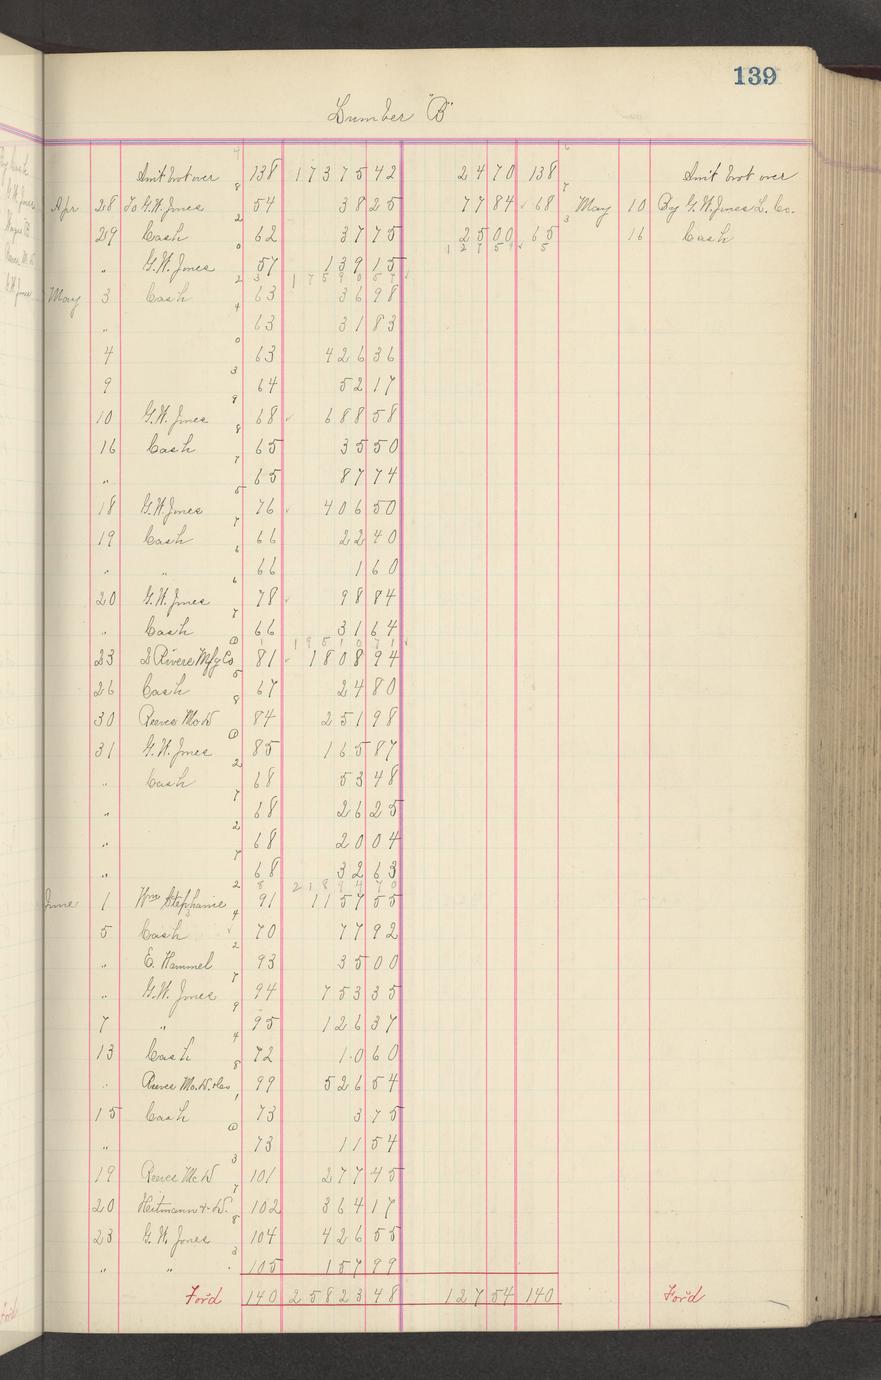 139
Lumber "B"
Am't brot over 138 17375 42 24 70 138 Am't brot over
Apr 28 To G.W. Jones 54 38 25 77 84 68 May 10 By G.W. Jones L. Co.
29 Cash 62 37 75 25 00 65 16 Cash
" G.W. Jones 57 139 15 127 54
17590 57
May 3 Cash 63 36 98
" 63 31 83
4 63 426 36
9 64 52 17
10 G.W. Jones 68 688 58
16 Cash 65 35 50
" 65 87 74
18 G.W. Jones 76 406 50
19 Cash 66 22 40
" " 66 1 60
20 G.W. Jones 78 98 84
" Cash 66 31 64
19510 71
23 2 Rivers Mfg Co 81 1808 94
26 Cash 67 24 80
30 Reeves Mc W 84 251 98
31 G.W. Jones 85 165 87
" Cash 68 53 48
" 68 26 25
" 68 20 04
" 68 32 63
21894 70
June 1 Wm Stephanie 91 1157 55
5 Cash 70 77 92
" E. Hammel 93 35 00
" G.W. Jones 94 753 35
7 " 95 126 37
13 Cash 72 10 60
" Reeves Mc. W. &Co 99 526 54
15 Cash 73 3 75
" 73 11 54
19 Reeves Mc W 101 277 45
20 Heitmann + W. 102 364 17
23 G.W. Jones 104 426 55
" " 105 157 99
For'd 140 25823 48 127 54 140 For'd